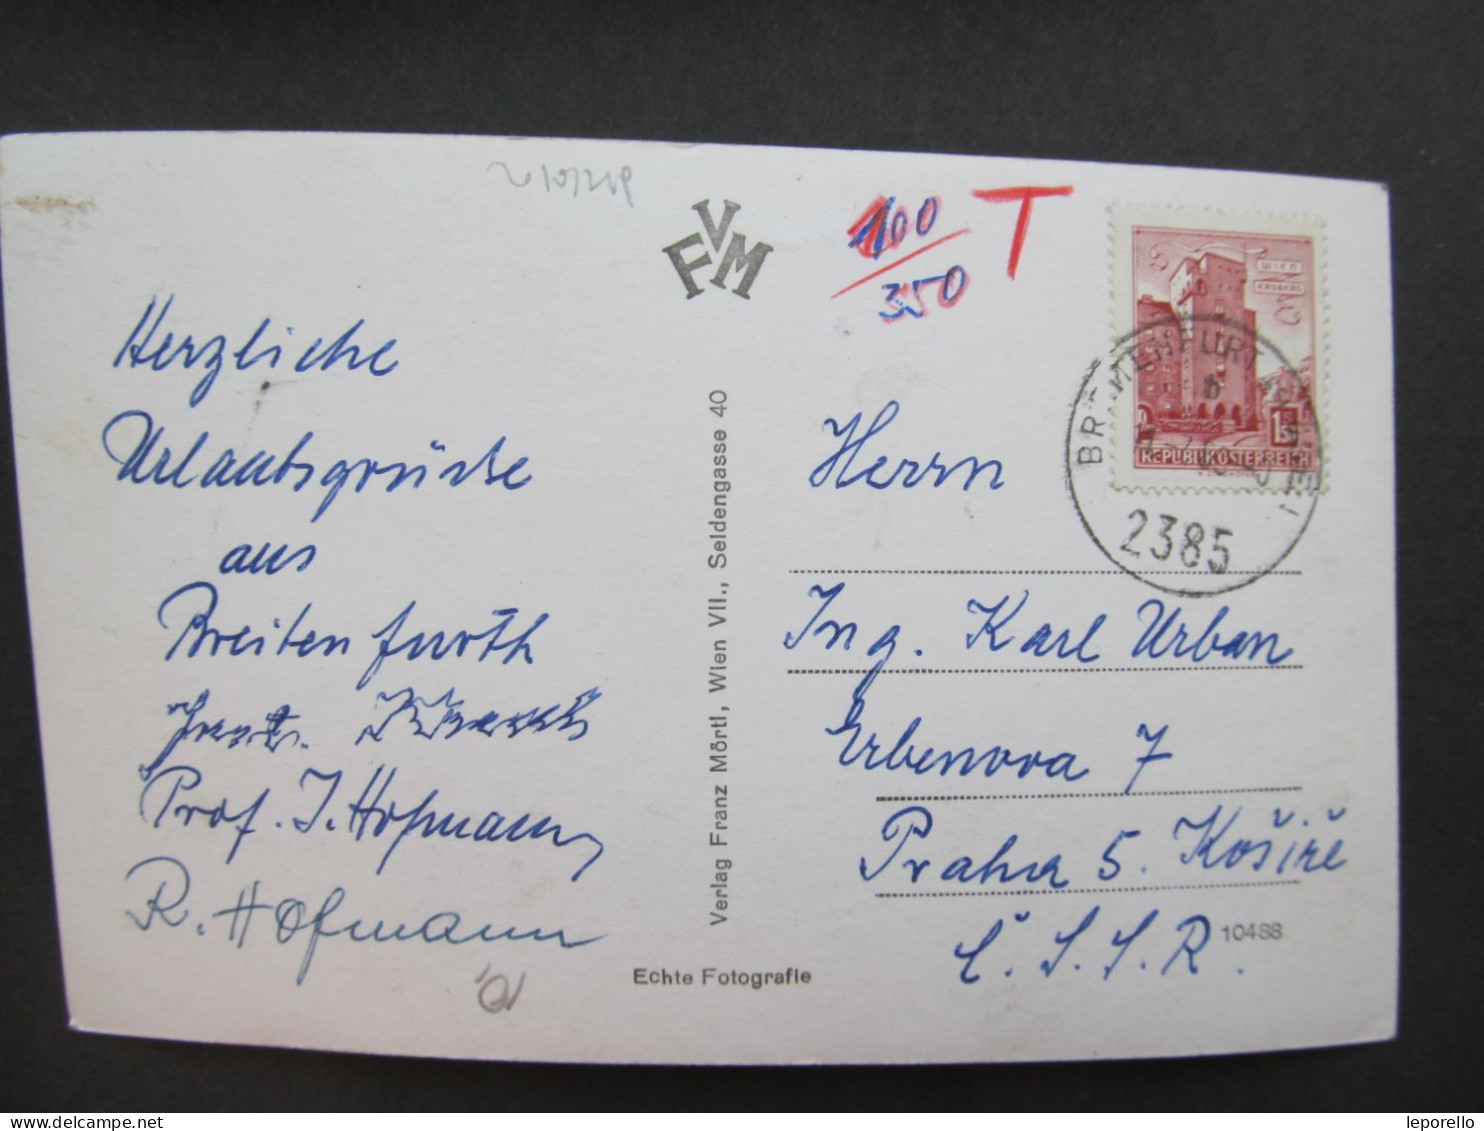 FVM
100
350
T
WIEN
ERDBERG
1S
REPUBLIK ÖSTERREICH
BREITENFURT
b
2385
Herzliche
Urlaubsgrüsse
aus
Breitenfurth
Prof. J. Hofmann
R. Hofmann
Verlag Franz Mörtl, Wien VII., Seidengasse 40
Echte Fotografie
Herrn
Ing. Karl Urban
Erbenova 7
Praha 5. Košíře
Č.S.S.R.
10488
delcampe.net
leporello